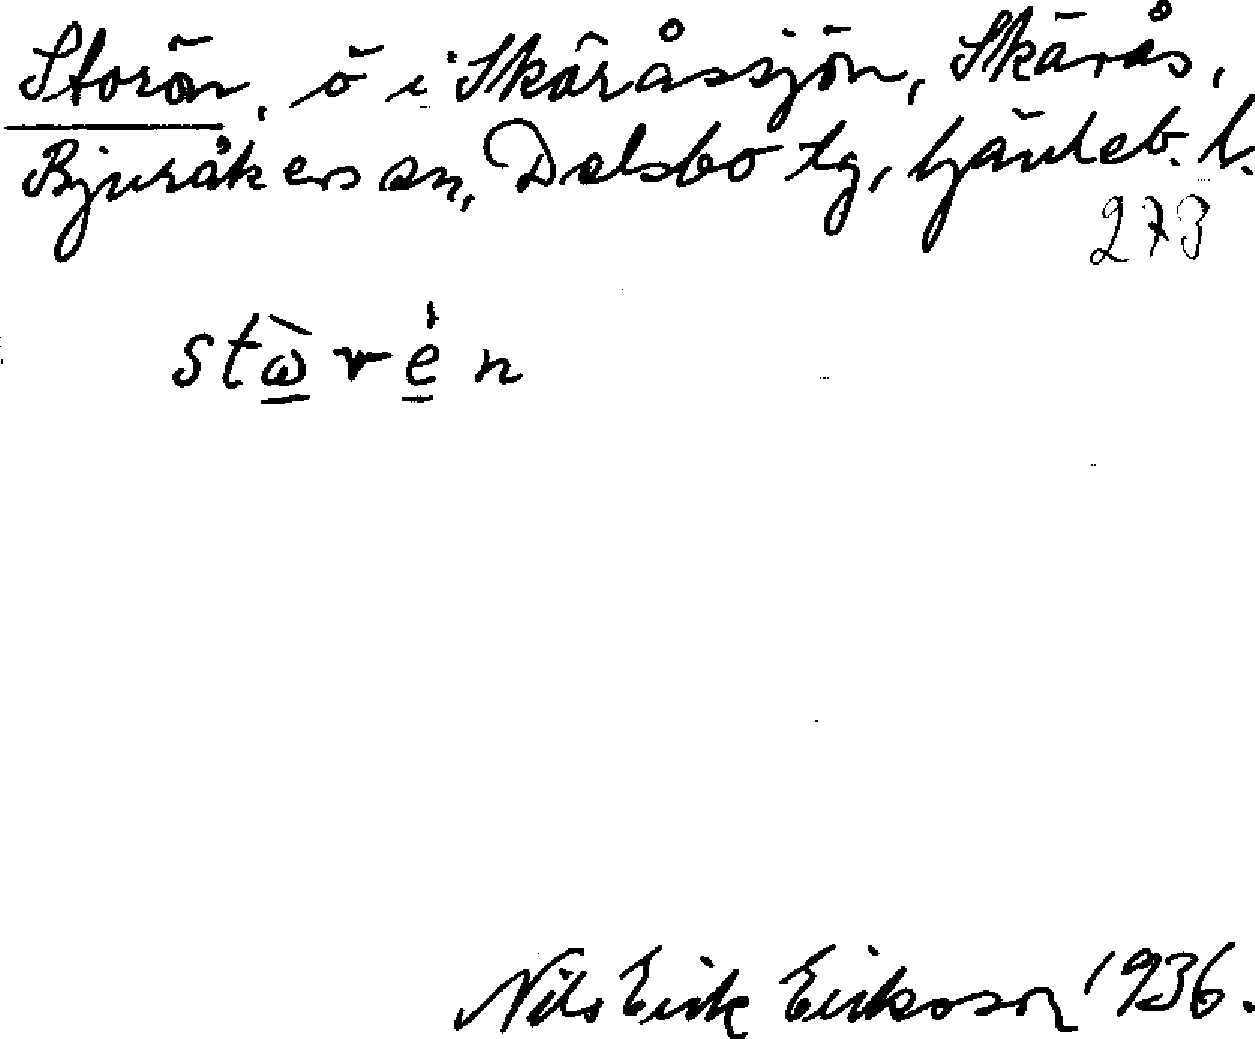 Storön, ö i Skäråssjön, Skärås,
Bjuråkers sn, Delsbo tg, Gävleb. l.
273
stὼrėn
Nils Erik Eriksson 1936.